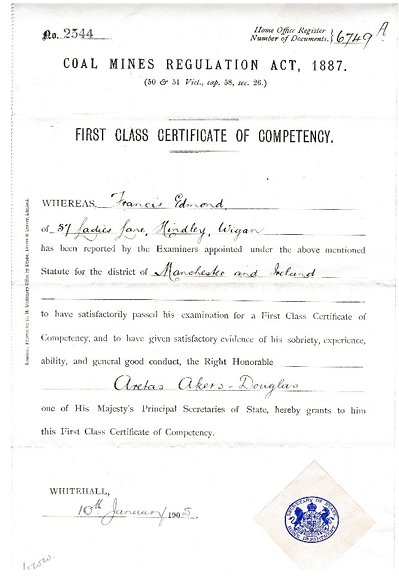 No. 2544
Home Office Register
Number of Documents. } 6749 A
COAL MINES REGULATION ACT, 1887.
(50 & 51 Vict., cap. 58, sec. 26.)
FIRST CLASS CERTIFICATE OF COMPETENCY.
WHEREAS, Francis Edmond,
of 57 Ladies Lane, Hindley, Wigan
has been reported by the Examiners appointed under the above mentioned
Statute for the district of Manchester and Ireland
to have satisfactorily passed his examination for a First Class Certificate of
Competency, and to have given satisfactory evidence of his sobriety, experience,
ability, and general good conduct, the Right Honorable
Aretas Akers-Douglas
one of His Majesty's Principal Secretaries of State, hereby grants to him
this First Class Certificate of Competency.
WHITEHALL,
10th January 1905
SECRETARY OF STATE
HOME DEPARTMENT